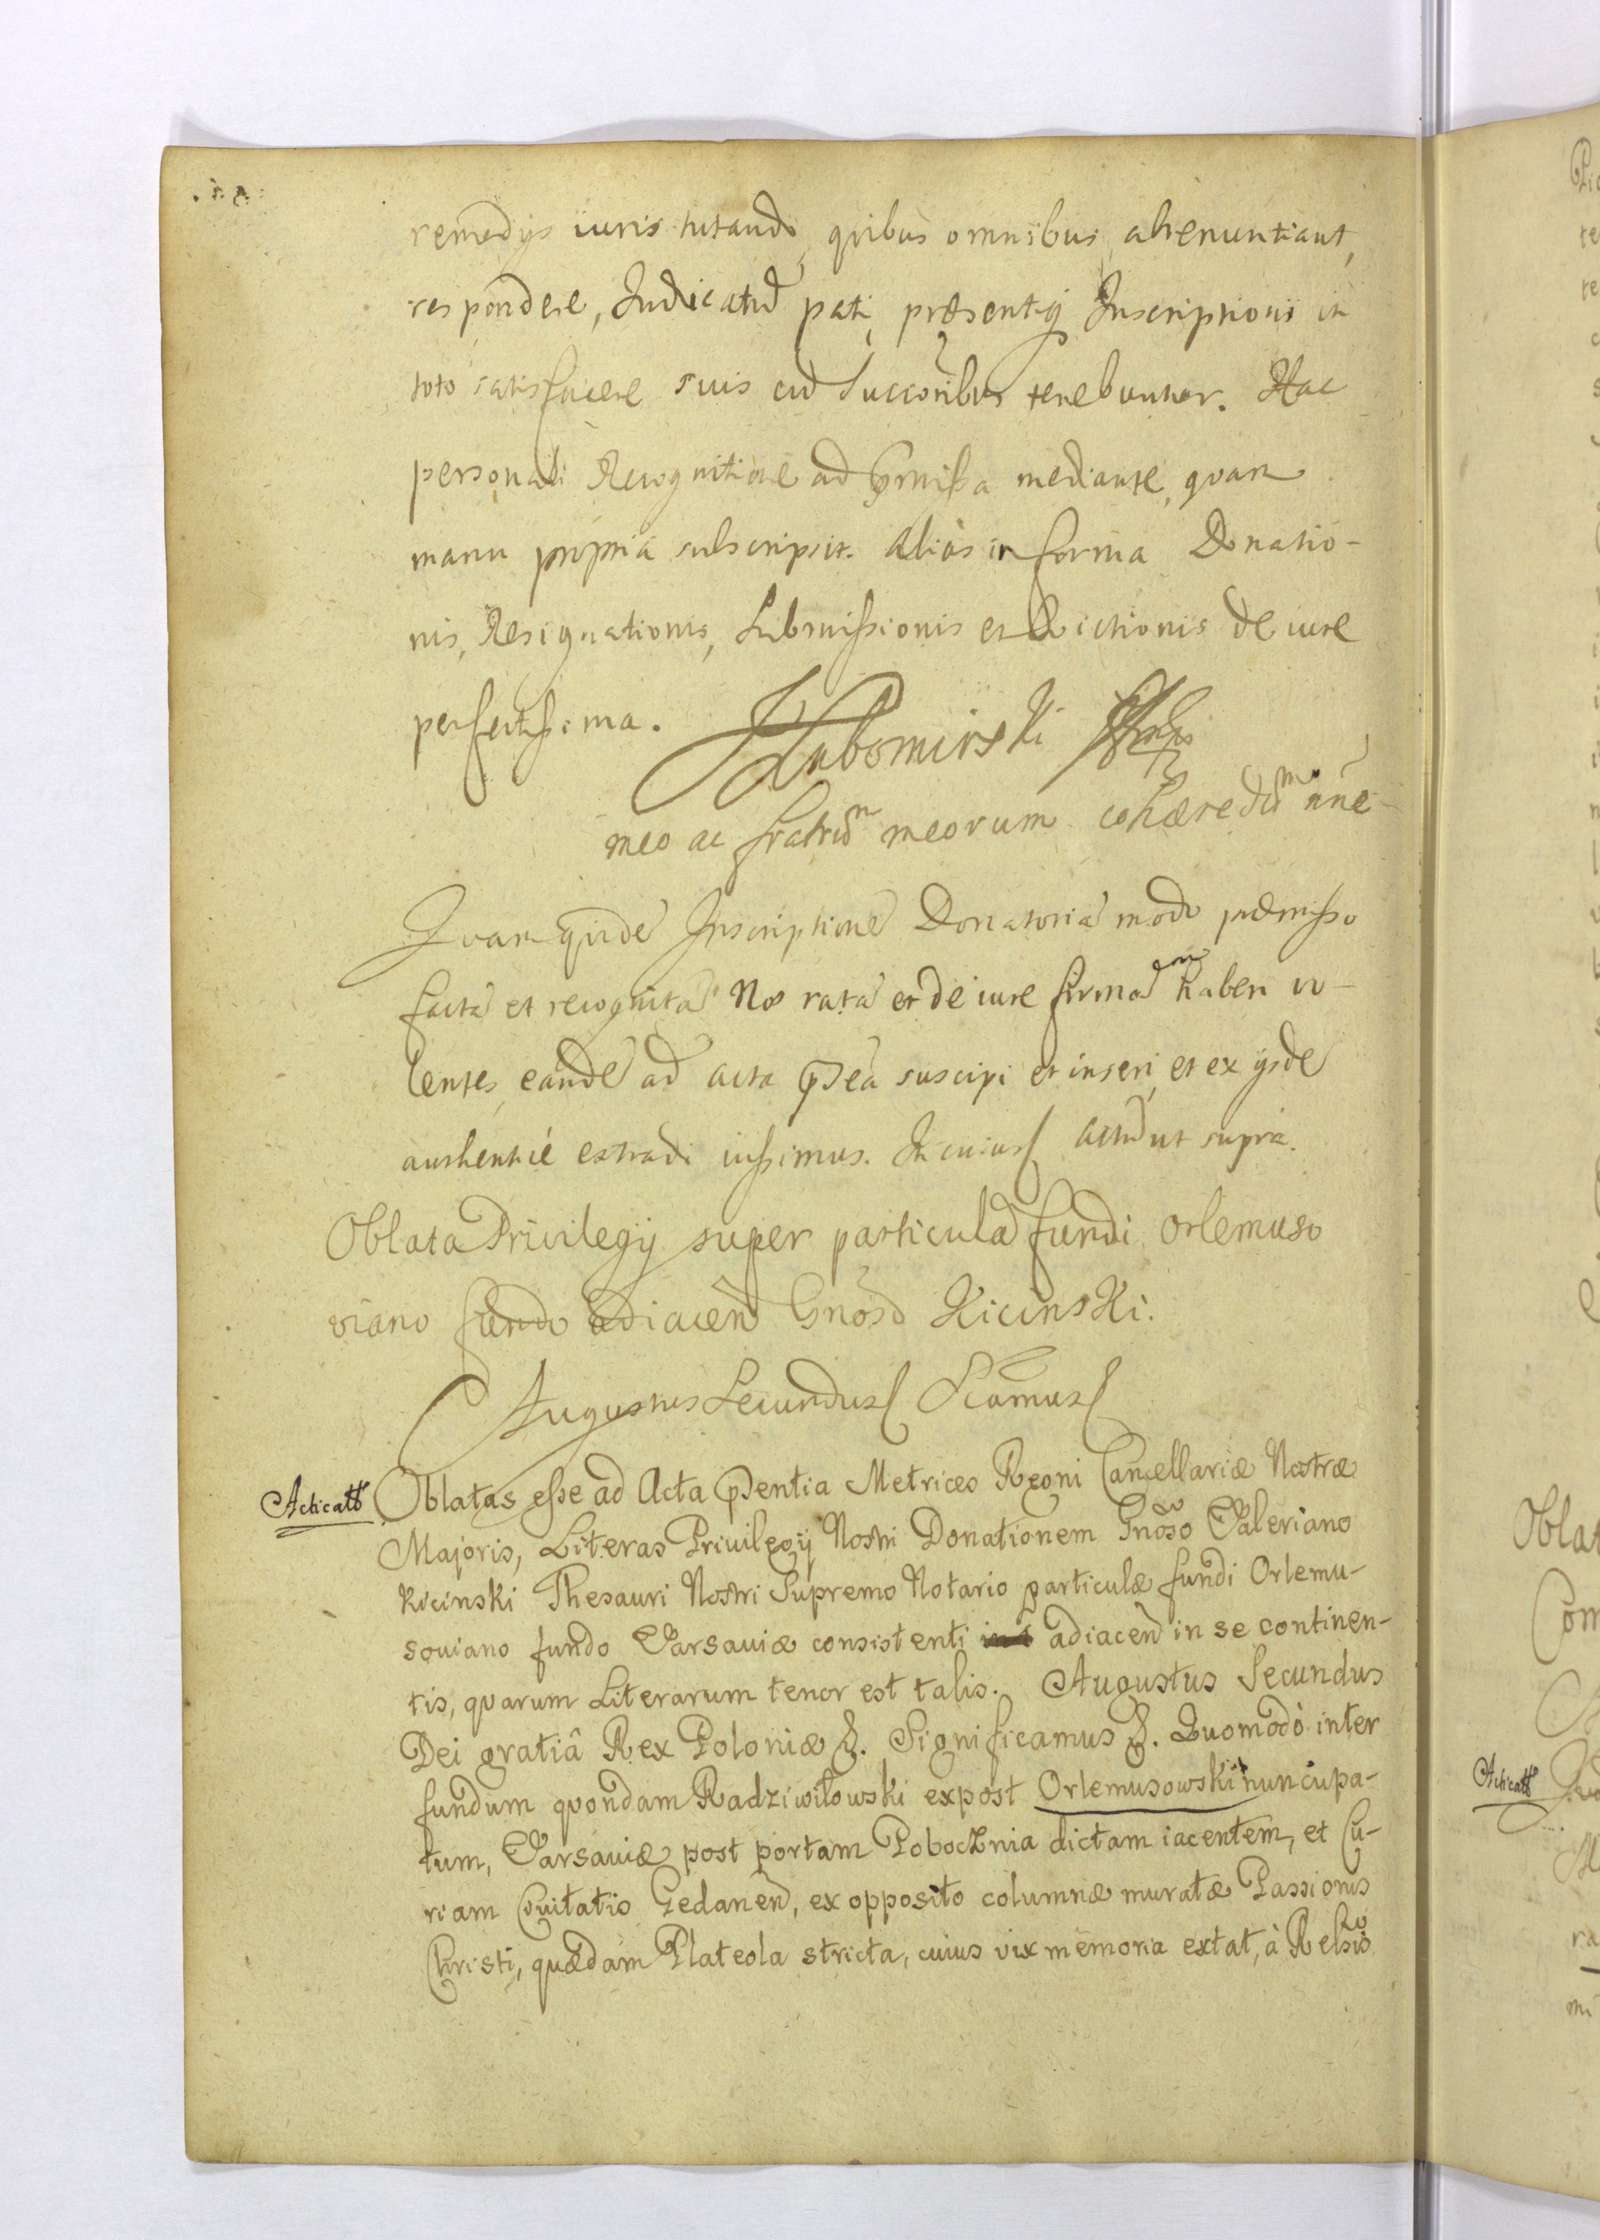 remedys iuris tutando, quibus omnibus abrenuntiant,
respondere, Judicatũ pati, præsentiq; Inscriptioni in
toto satisfacere suis cũ Succoribus tenebuntur. Hac
personali Recognitione ad præmissa mediante, quam
manu propria subscripsit. Aliàs in forma Donatio-
nis, Resignationis, Submissionis et Evictionis de iure
perfectissima. Lubomirski
meo ac fratrũm meorum cohæredũm nñe
Quam quidẽ Inscriptionẽ Donatoriã modo præmisso
factã et recognitã Nos ratã et de iure firmam haberi vo-
lentes, eandẽ ad acta pñtia suscipi et inseri, et ex ysdẽ
authenticè extradi iussimus. In cuius Actũ ut supra.
Oblata Privilegy super particulã fundi Orlemuso
viano fundo adiaceñ Gnoso Kicinski.
Augustus Secundus Scamus
Acticatũ Oblatas esse ad Acta pñtia Metrices Regni Cancellariæ Nostræ
Majoris, Literas Privilegij Nostri Donationem Gñoso Valeriano
Kicinski Thesauri Nostri Supremo Notario particulæ fundi Orlemu-
soviano fundo Varsaviæ consistenti adiaceñ in se continen-
tis, quarum Literarum tenor est talis. Augustus Secundus
Dei gratiâ Rex Poloniæ &. Significamus &. Quomodò inter
fundum quondam Radziwiłowski expost Orlemusowski nuncupa-
tum, Varsaviæ post portam Pobocznia dictam iacentem, et Cu-
riam Civitatis Gedaneñ, ex opposito columnæ muratæ Passionis
Christi, quædam Plateola stricta, cuius vix memoria extat, à
Oblat
Com
Acticatũ